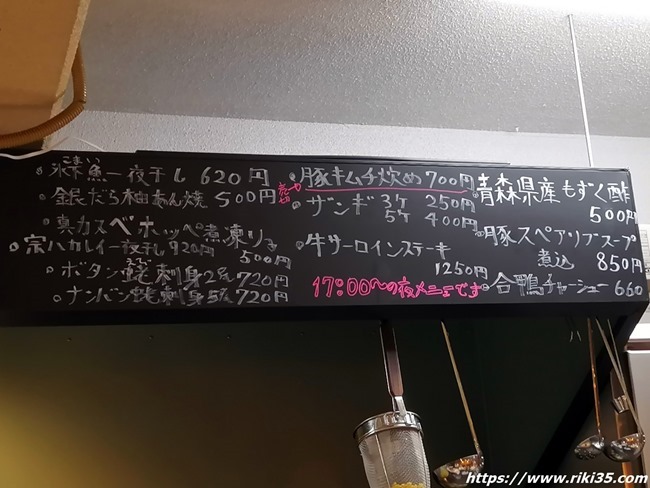 こまい
氷魚一夜干し 620円
銀だら柚あん焼 500円 売切
真カスベホッペ煮凍り 500円
宗八カレイ一夜干し 920円
ボタン蛯刺身2本 720円
ナンバン蛯刺身5本 720円
豚キムチ炒め 700円
ザンギ 3ケ 250円
5ケ 400円
牛サーロインステーキ
1250円
17:00〜の夜メニューです
青森県産もずく酢
500円
豚スペアリブスープ
煮込 850円
合鴨チャーシュー 660
https://www.riki35.com